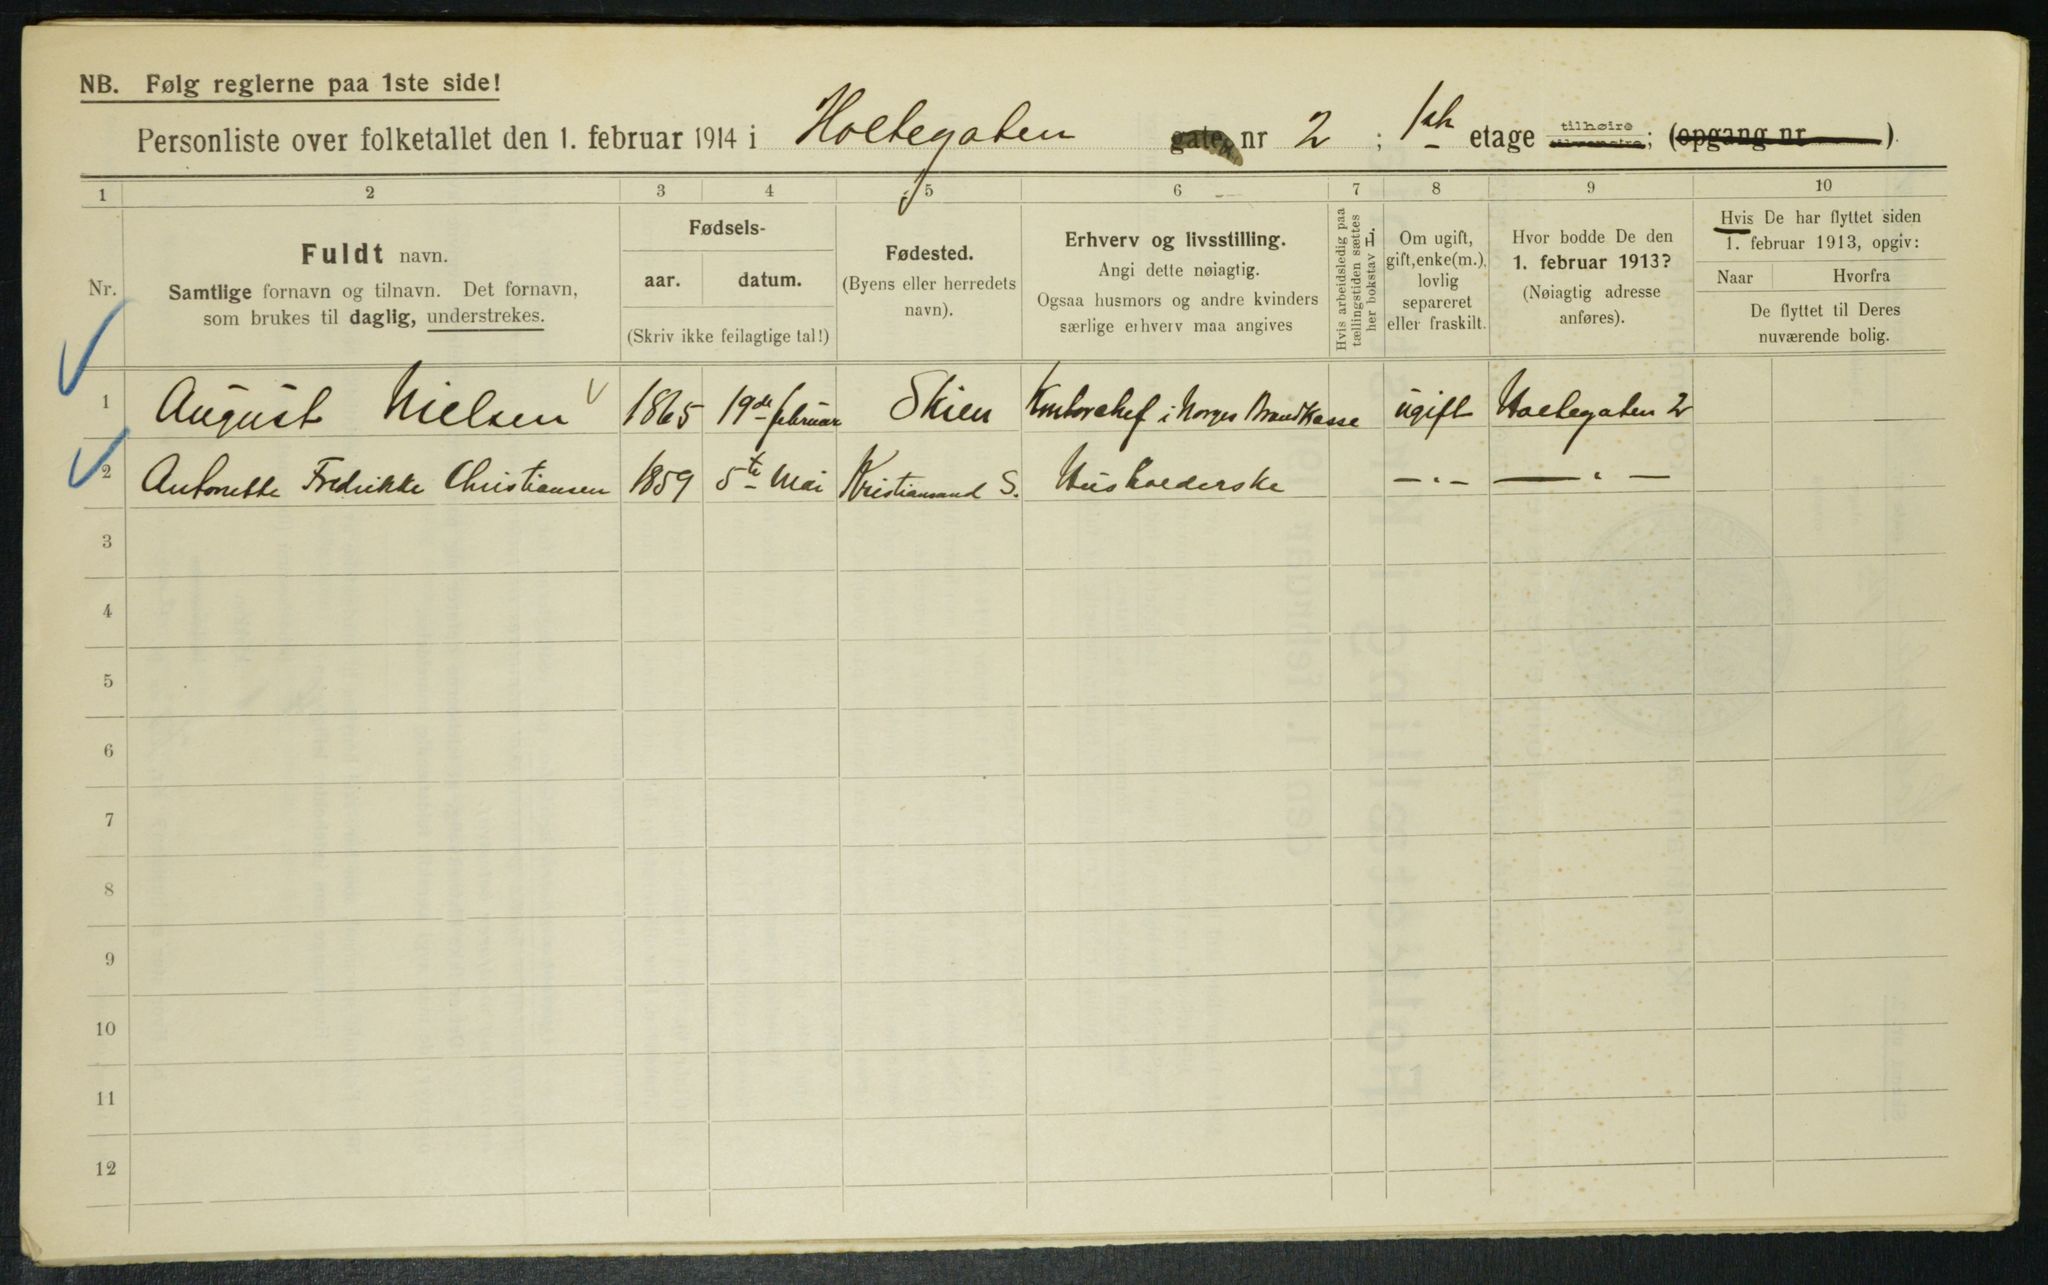 NB. Følg reglerne paa 1ste side!
Personliste over folketallet den 1. februar 1914 i Holtegaten gaten nr 2 ; 1ste etage tilhøire tilvenstre; (opgang nr )
1 2 3 4 5 6 7 8 9 10
Nr.
Fuldt navn.
Samtlige fornavn og tilnavn. Det fornavn,
som brukes til daglig, understrekes.
Fødsels-
aar. datum.
(Skriv ikke feilagtige tal!)
Fødested.
(Byens eller herredets
navn).
Erhverv og livsstilling.
Angi dette nøiagtig.
Ogsaa husmors og andre kvinders
særlige erhverv maa angives
Hvis arbeidsledig paa
tællingstiden sættes
her bokstav L.
Om ugift,
gift, enke(m.),
lovlig
separeret
eller fraskilt.
Hvor bodde De den
1. februar 1913?
(Nøiagtig adresse
anføres).
Hvis De har flyttet siden
1. februar 1913, opgiv:
Naar Hvorfra
De flyttet til Deres
nuværende bolig.
1 August Nielsen 1865 19de februar Skien Kontorchef i Norges Brandkasse ugift Holtegaten 2
2 Antonette Fredrikke Christiansen 1859 5te Mai Kristiansand S. Husholderske — " — — " —
3
4
5
6
7
8
9
10
11
12